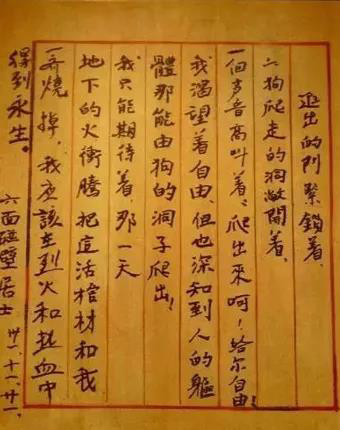 出的門緊鎖着、
狗爬走的洞敞開着、
一個声音高叫着、爬出來呵！給尔自由！
我渴望着自由、但也深知到人的軀
體那能由狗的洞子爬出！
我只能期待着、那一天
地下的火衝騰把這活棺材和我
一齊燒掉，我应該在烈火和热血中
得到永生。
六面碰壁居士 卅一、十一、廿一、